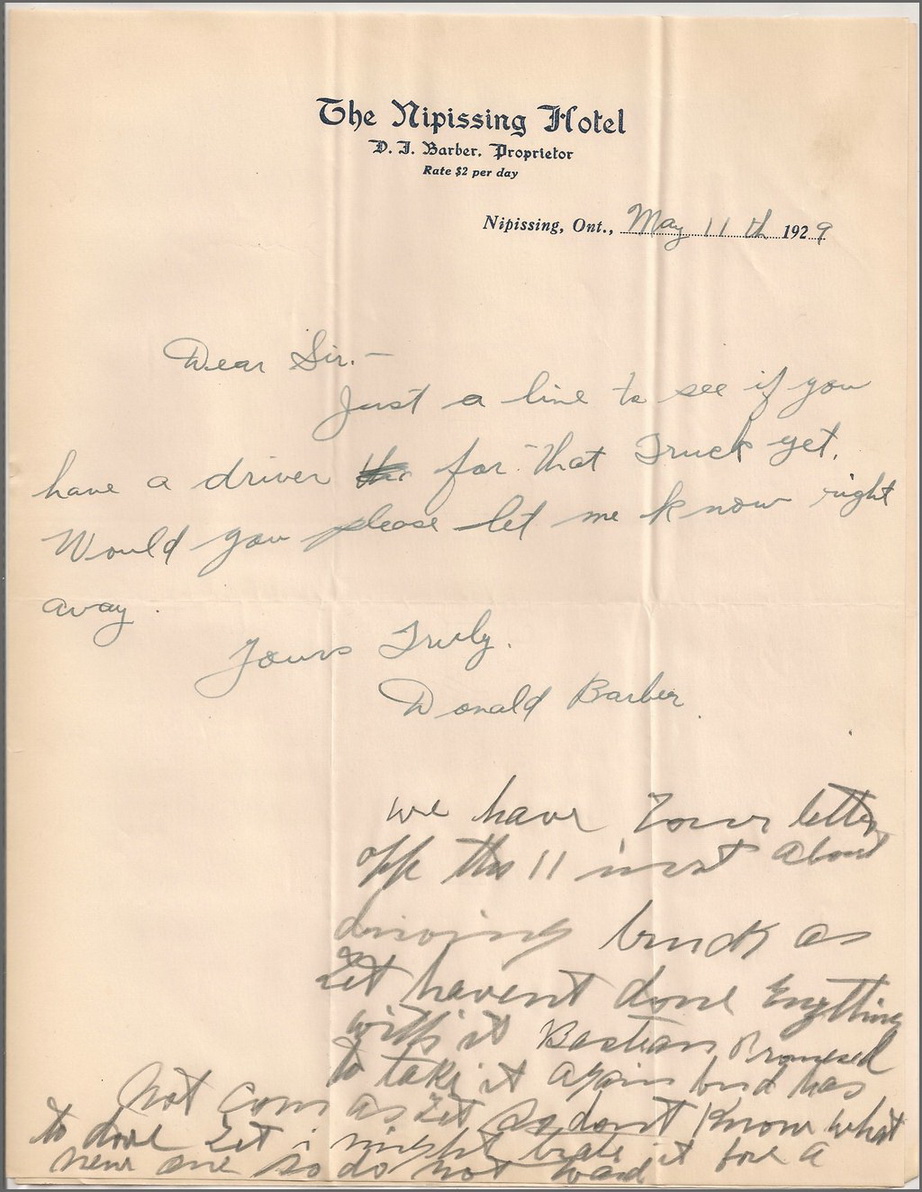 The Nipissing Hotel
D. J. Barber, Proprietor
Rate $2 per day
Nipissing, Ont., May 11 th 1929
Dear Sir.—
Just a line to see if you
have a driver the for that Truck yet.
Would you please let me know right
away.
Yours Truly.
Donald Barber
we have Your letter
off the 11 inst about
driving truck as
Yet havent done Enything
with it Bastian Promesed
to take it again bud has
Not com as Yet so dont Know what
to doo Yet i might trate it fore a
new one so do not